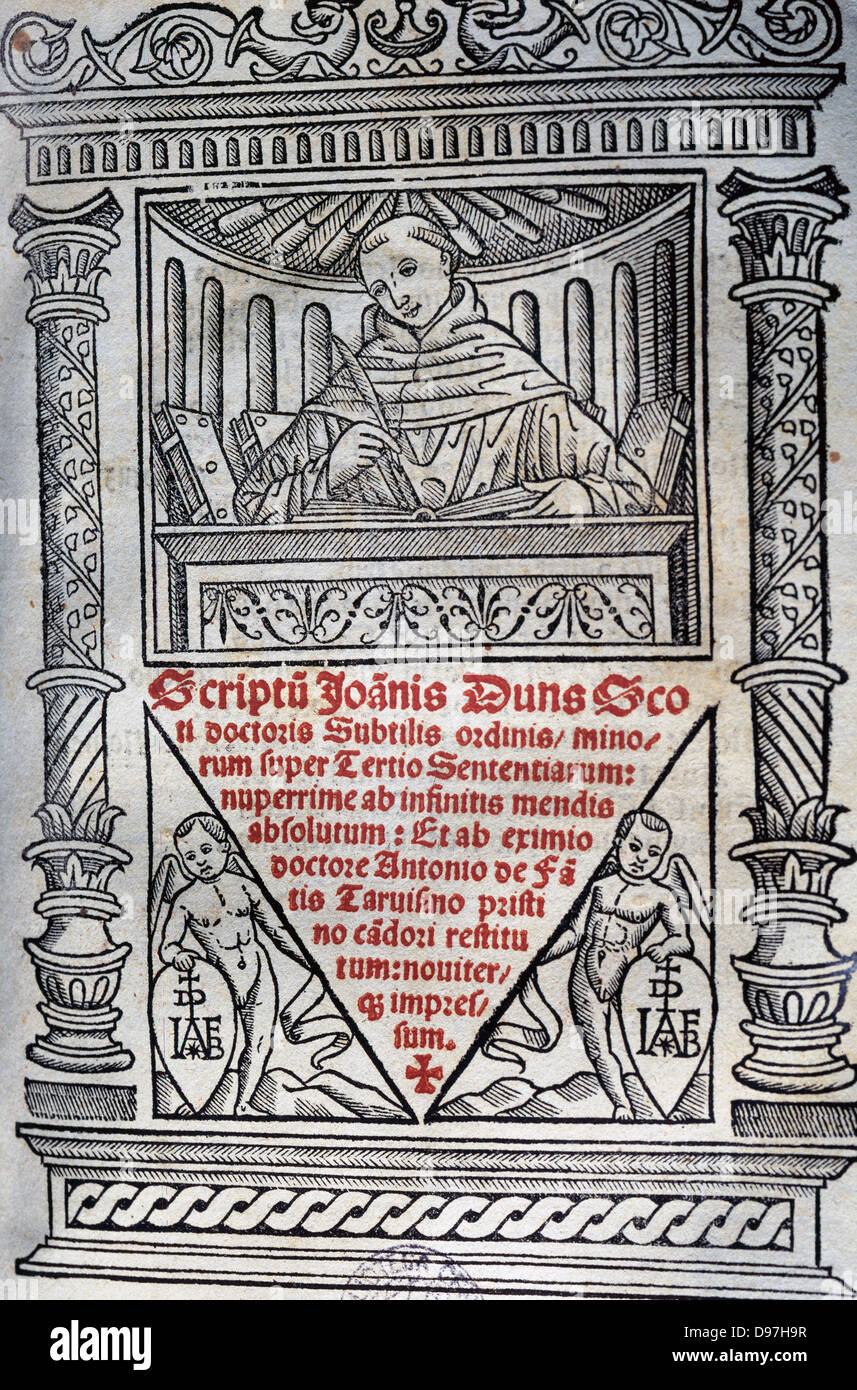 Scriptū Joānis Duns Sco
ti doctoris Subtilis ordinis/ mino/
rum super Tertio Sententiarum:
nuperrime ab infinitis mendis
absolutum: Et ab eximio
doctore Antonio de Fā
tis Taruisino pristi
no cādori restitu
tum: nouiter/
qꝫ impres/
sum.
D
IAFB
D
IAFB
alamy
Image ID: D97H9R
www.alamy.com